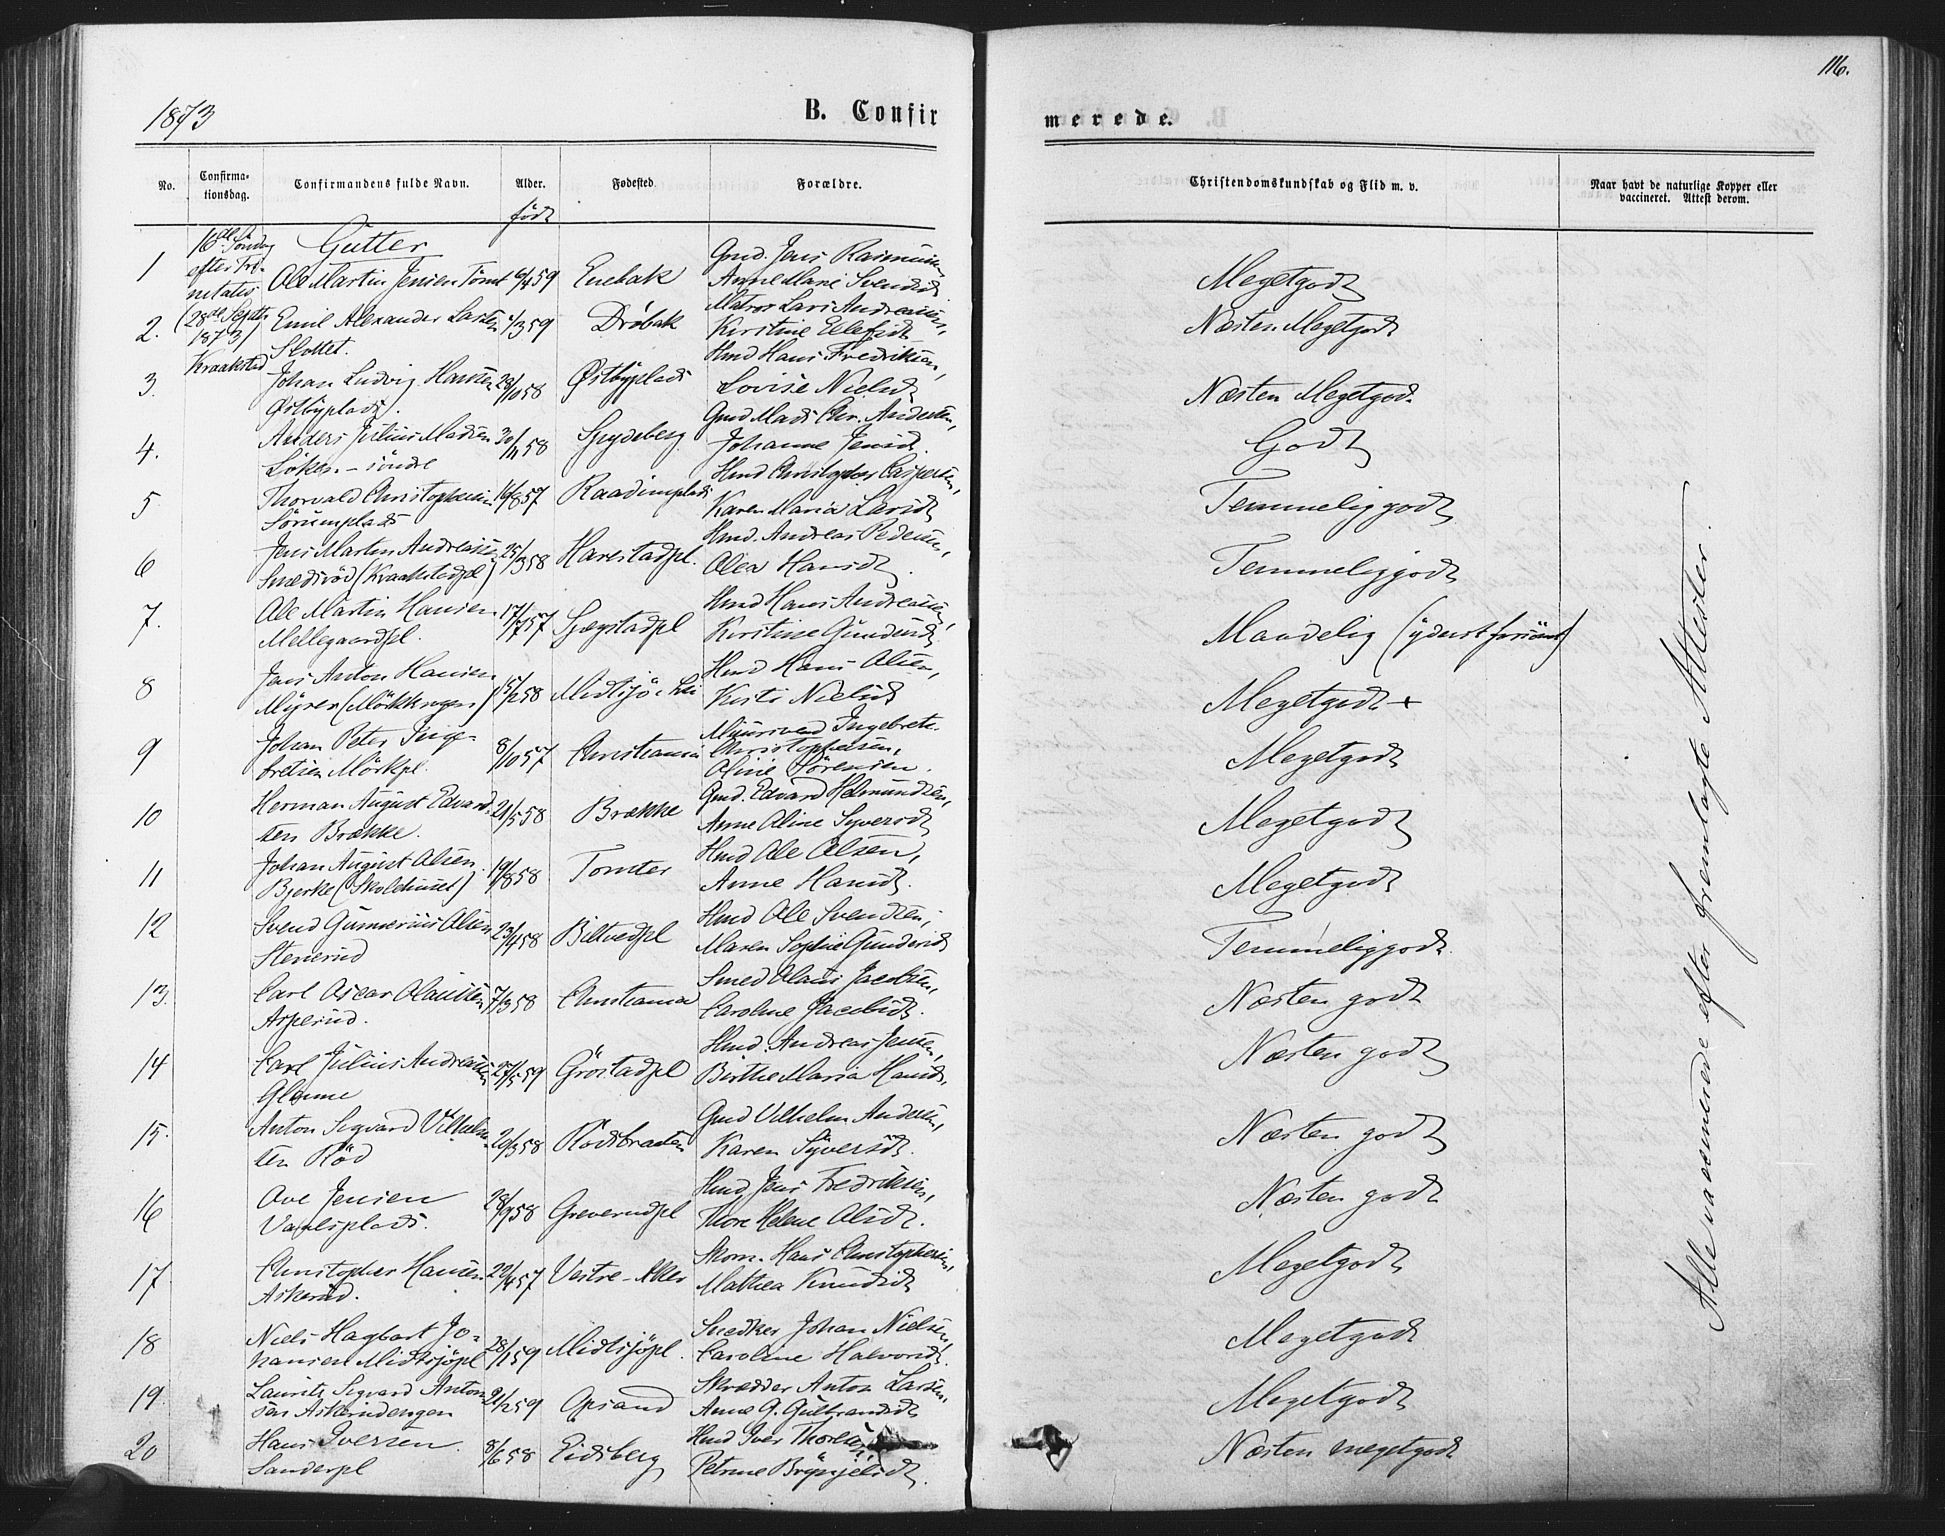 1873
B. Confirmerede.
116.
No.
Confirma-
tionsdag.
Confirmandens fulde Navn.
Alder.
Fødested.
Forældre.
Christendomskundskab og Flid m. v.
Naar havt de naturlige Kopper eller
vaccineret. Attest derom.
født
Gutter
16de Søndag
efter Tri-
nitatis
(28de Septbr
1873)
Kraakstad
1
Ole Martin Jensen Tomt
6/4 59
Enebak
Gmd. Jens Rasmussen
Anne Marie Svendsd
Megetgodt
2.
Emil Alexander Larsen
Slottet.
/3 59
Drøbak
Matros Lars Andreassen,
Kirstine Ellefsd
Næsten Megetgodt
3.
Johan Ludvig Hansen
Østbyplads.
/10 58
Østbyplads
Hmd Hans Fredriksen,
Lovise Nielsd
Næsten Megetgodt
4.
Anders Julius Madsen
Løken - søndre
30/11 58
Spydeberg
Gmd Mads Chr. Andersen,
Johanne Jensd.
Godt
5
Thorvald Christophersen
Sørumplads
16/8 57
Raadimplads
Hmd Christopher Caspersen,
Karen Maria Larsd
Temmelig godt
6
Jens Martin Andreassen
Smedsrød (Kraakstadpl)
25/3 58
Harestadpl.
Hmd. Andreas Pedersen,
Olea Hansd.
Temmeliggodt
7.
Ole Martin Hansen
Mellegaardpl.
17/7 57
Hmd Hans Andreassen,
Kirstine Gundersd
Maadelig (yderst forsømt)
8
Jens Anton Hansen
Myrer (Mörkkrogen)
/2 58
Hmd Hans Olsen,
Kirsti Nielsd
Megetgodt +
9
Johan Peter Inge-
bretsen Mörkpl.
8/10 57
Christiania
Muursvend Ingebret
Christophersen,
Oline Sørensen.
Megetgodt
10
Herman August Edvard-
sen Brække.
21/5 58
Brække
Gmd. Edvard Helmundsen,
Anne Oline Syversd
Megetgodt
11
Johan August Olsen
Bjerke (Skolehuset)
19/8 58
Tomter
Hmd Ole Olsen,
Anne Hansd.
Megetgodt
12
Svend Gunnerius Olsen
Stenerud
23/4 58
Biltvedpl
Hmd Ole Svendsen,
Maren Sophie Gundersd
Temmeliggodt.
13.
Carl Oscar Olaussen
Asperud.
7/3 58
Christiania
Smed Olaus Jacobsen,
Caroline Jacobsd.
Næsten godt
14
Carl Julius Andreassen
Glenne
27/5 59
Gröstadpl
Hmd. Andreas Jensen,
Birthe Maria Hansd.
Næsten godt
15.
Anton Sigvard Vilhelm-
sen Rød
20/3 58
Rödsbraaten
Gmd Vilhelm Andersen,
Karen Syversd.
Næsten godt
16
Ove Jensen
28/9 58
Greverudpl
Hmd Jens Fredriksen,
Thore Helene Olsd.
Næsten godt
17
Christopher Hansen
Askerud.
22/4 57
Vestre-Aker
Skom. Hans Christophersen,
Mathea Knudsd
Megetgodt
18
Niels Hagbart Jo-
hansen Midtsjöpl
28/1 59
Midtsjöpl.
Snedker Johan Nielsen,
Caroline Halvorsd.
Megetgodt
19.
Lauritz Sigvard Anton-
sen Askerudengen
21/2 59
Opsand
Skrædder Anton Larsen,
Anne G. Gulbrandsd
Megetgodt
20
Hans Iversen.
Sanderpl
8/6 58
Eidsberg
Hmd Iver Thorsen,
Petrine Brynjelsd.
Næsten megetgodt
Alle vaccinerede efter fremlagte Attester.